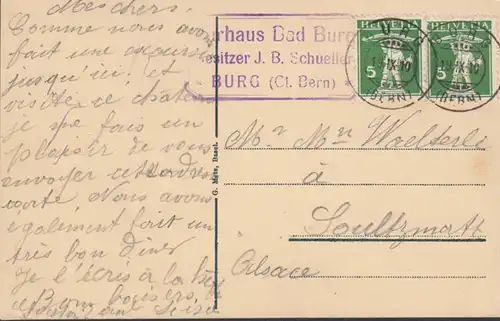 Mes chers.
Comme nous avons
fait une excursion
jusqu'ici, et
visité ce château
je me fais un
plaisir de vous
envoyer cette
carte. Nous avons
également fait un
très bon dîner
Je l'écris à la
Bons baisers,
urhaus Bad Burg
Besitzer J. B. Schueller
BURG (Ct. Bern)
HELVETIA HELVETIA
5 5
(BERN) (BERN)
G. Metz, Basel.
Mr Mme Waelterlé
à
Soultzmatt
Alsace